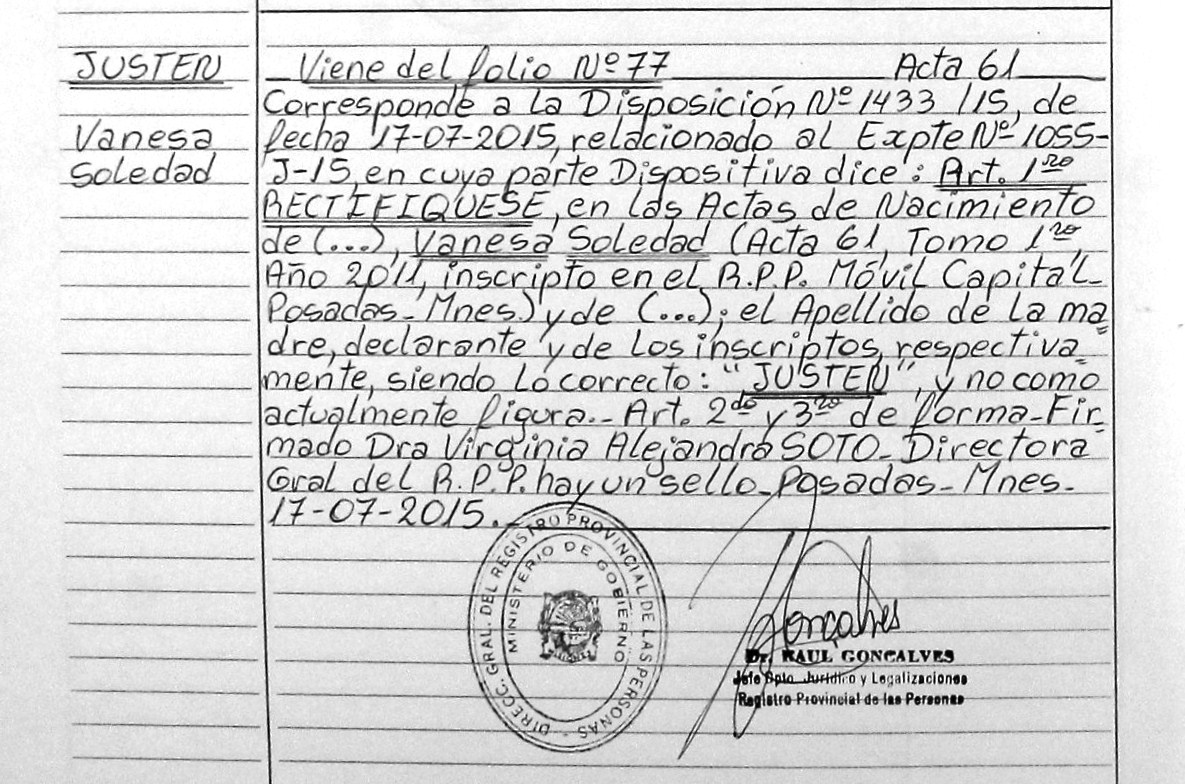 JUSTEN
Vanesa
Soledad
Viene del folio Nº 77 Acta 61
Corresponde a la Disposición Nº 1433/15, de
fecha 17-07-2015, relacionado al Expte Nº 1055-
J-15, en cuya parte Dispositiva dice: Art. 1ro
RECTIFIQUESE, en las Actas de Nacimiento
de (...), Vanesa Soledad (Acta 61, Tomo 1ro,
Año 2011, inscripto en el R.P.P. Móvil Capital-
Posadas-Mnes.) y de (...); el Apellido de la ma=
dre, declarante y de los inscriptos, respectiva=
mente, siendo lo correcto: "JUSTEN", y no como
actualmente figura.- Art. 2do y 3ro de forma-Fir-
mado Dra Virginia Alejandra SOTO-Directora
Gral del R.P.P. hay un sello-Posadas-Mnes-
17-07-2015.-
DIRECC. GRAL. DEL REGISTRO PROVINCIAL DE LAS PERSONAS -
MINISTERIO DE GOBIERNO
Goncalves
Dr. RAUL GONCALVES
Jefe Dpto. Jurídico y Legalizaciones
Registro Provincial de las Personas